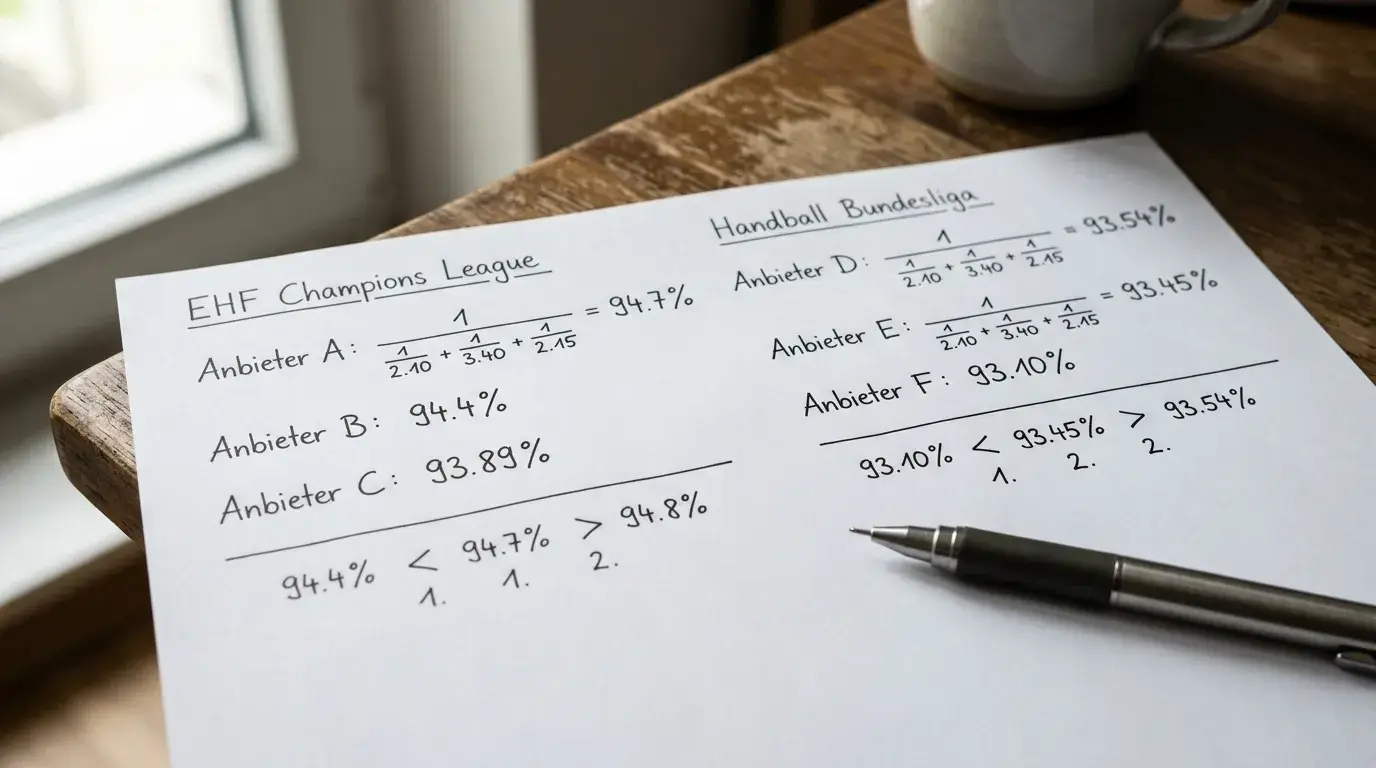 EHF Champions League
Anbieter A: 1 / (1/2.10 + 1/3.40 + 1/2.15) = 94.7%
Anbieter B: 94.4%
Anbieter C: 93.89%
94.4% < 94.7% > 94.8%
1. 1. 2.
Handball Bundesliga
Anbieter D: 1 / (1/2.10 + 1/3.40 + 1/2.15) = 93.54%
Anbieter E: 1 / (1/2.10 + 1/3.40 + 1/2.15) = 93.45%
Anbieter F: 93.10%
93.10% < 93.45% > 93.54%
1. 2. 2.